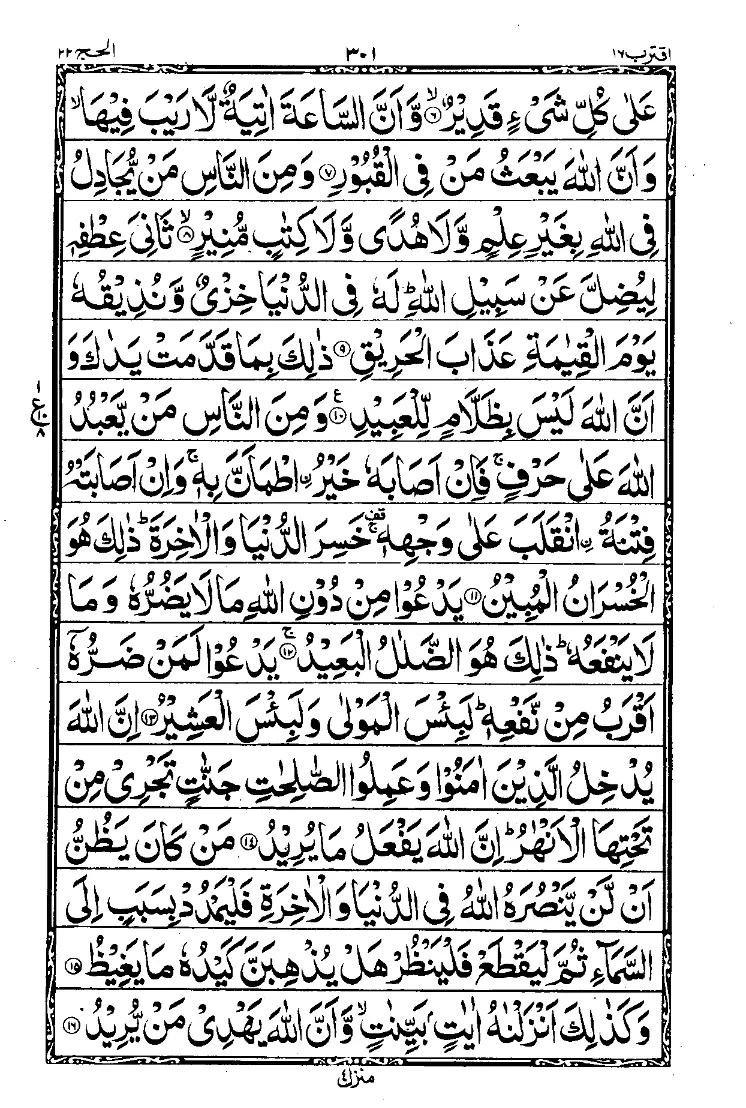 اقترب ١٦ ٣٠١ الحج ٢٢
عَلٰى كُلِّ شَیْءٍ قَدِیْرٌ ۙ﴿۶﴾ وَّ اَنَّ السَّاعَةَ اٰتِیَةٌ لَّا رَیْبَ فِیْهَا ۙ
وَ اَنَّ اللّٰهَ یَبْعَثُ مَنْ فِی الْقُبُوْرِ ﴿۷﴾ وَ مِنَ النَّاسِ مَنْ یُّجَادِلُ
فِی اللّٰهِ بِغَیْرِ عِلْمٍ وَّ لَا هُدًی وَّ لَا كِتٰبٍ مُّنِیْرٍ ۙ﴿۸﴾ ثَانِیَ عِطْفِهٖ
لِیُضِلَّ عَنْ سَبِیْلِ اللّٰهِ ؕ لَهٗ فِی الدُّنْیَا خِزْیٌ وَّ نُذِیْقُهٗ
یَوْمَ الْقِیٰمَةِ عَذَابَ الْحَرِیْقِ ﴿۹﴾ ذٰلِكَ بِمَا قَدَّمَتْ یَدٰكَ وَ
اَنَّ اللّٰهَ لَیْسَ بِظَلَّامٍ لِّلْعَبِیْدِ ﴿۱۰﴾ ع وَ مِنَ النَّاسِ مَنْ یَّعْبُدُ
اللّٰهَ عَلٰى حَرْفٍ ۚ فَاِنْ اَصَابَهٗ خَیْرُ ۨاطْمَاَنَّ بِهٖ ۚ وَ اِنْ اَصَابَتْهُ
فِتْنَةُ ۨانْقَلَبَ عَلٰى وَجْهِهٖ ۚ۫ خَسِرَ الدُّنْیَا وَ الْاٰخِرَةَ ؕ ذٰلِكَ هُوَ
الْخُسْرَانُ الْمُبِیْنُ ﴿۱۱﴾ یَدْعُوْا مِنْ دُوْنِ اللّٰهِ مَا لَا یَضُرُّهٗ وَ مَا
لَا یَنْفَعُهٗ ؕ ذٰلِكَ هُوَ الضَّلٰلُ الْبَعِیْدُ ۚ﴿۱۲﴾ یَدْعُوْا لَمَنْ ضَرُّهٗۤ
اَقْرَبُ مِنْ نَّفْعِهٖ ؕ لَبِئْسَ الْمَوْلٰى وَ لَبِئْسَ الْعَشِیْرُ ﴿۱۳﴾ اِنَّ اللّٰهَ
یُدْخِلُ الَّذِیْنَ اٰمَنُوْا وَ عَمِلُوا الصّٰلِحٰتِ جَنّٰتٍ تَجْرِیْ مِنْ
تَحْتِهَا الْاَنْهٰرُ ؕ اِنَّ اللّٰهَ یَفْعَلُ مَا یُرِیْدُ ﴿۱۴﴾ مَنْ كَانَ یَظُنُّ
اَنْ لَّنْ یَّنْصُرَهُ اللّٰهُ فِی الدُّنْیَا وَ الْاٰخِرَةِ فَلْیَمْدُدْ بِسَبَبٍ اِلَی
السَّمَآءِ ثُمَّ لْیَقْطَعْ فَلْیَنْظُرْ هَلْ یُذْهِبَنَّ كَیْدُهٗ مَا یَغِیْظُ ﴿۱۵﴾
وَ كَذٰلِكَ اَنْزَلْنٰهُ اٰیٰتٍۭ بَیِّنٰتٍ ۙ وَّ اَنَّ اللّٰهَ یَهْدِیْ مَنْ یُّرِیْدُ ﴿۱۶﴾
منزل ٤